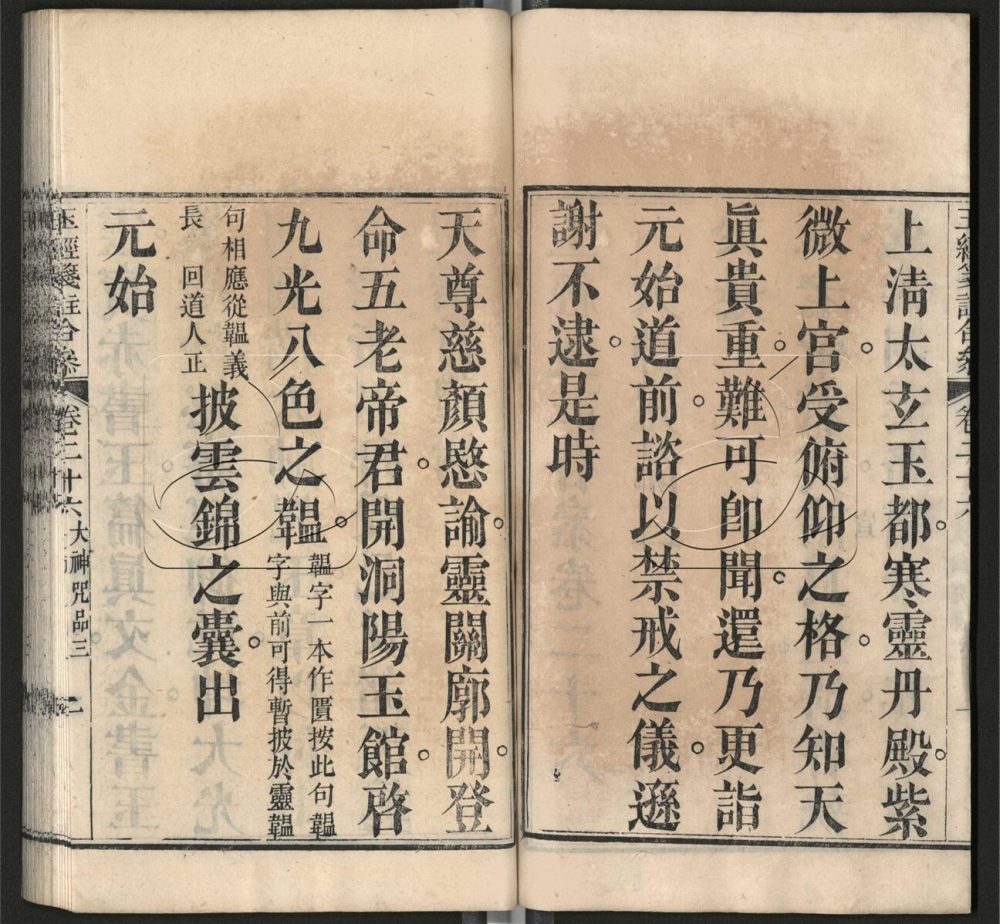 上淸太玄玉都寒靈丹殿紫
微上宮受俯仰之格乃知天
眞貴重難可卽聞還乃更詣
元始道前諮以禁戒之儀遜
謝不逮是時
天尊慈顏愍諭靈關廓開登
命五老帝君開洞陽玉館啓
九光八色之韞韞字一本作匱按此句韞
字與前可得暫披於靈韞
句相應從韞義
長 回道人正披雲錦之囊出
元始
玉經箋註合叅 卷二十六 大神咒品三 二